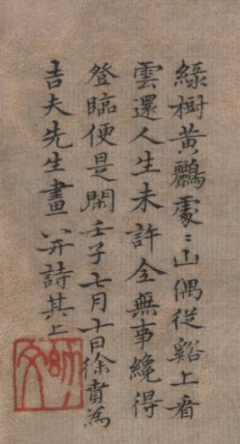 綠樹黃鸝處〻山偶從谿上看
雲還人生未許全無事纔得
登臨便是閑壬子七月十日徐賁為
吉夫先生畫并詩其上